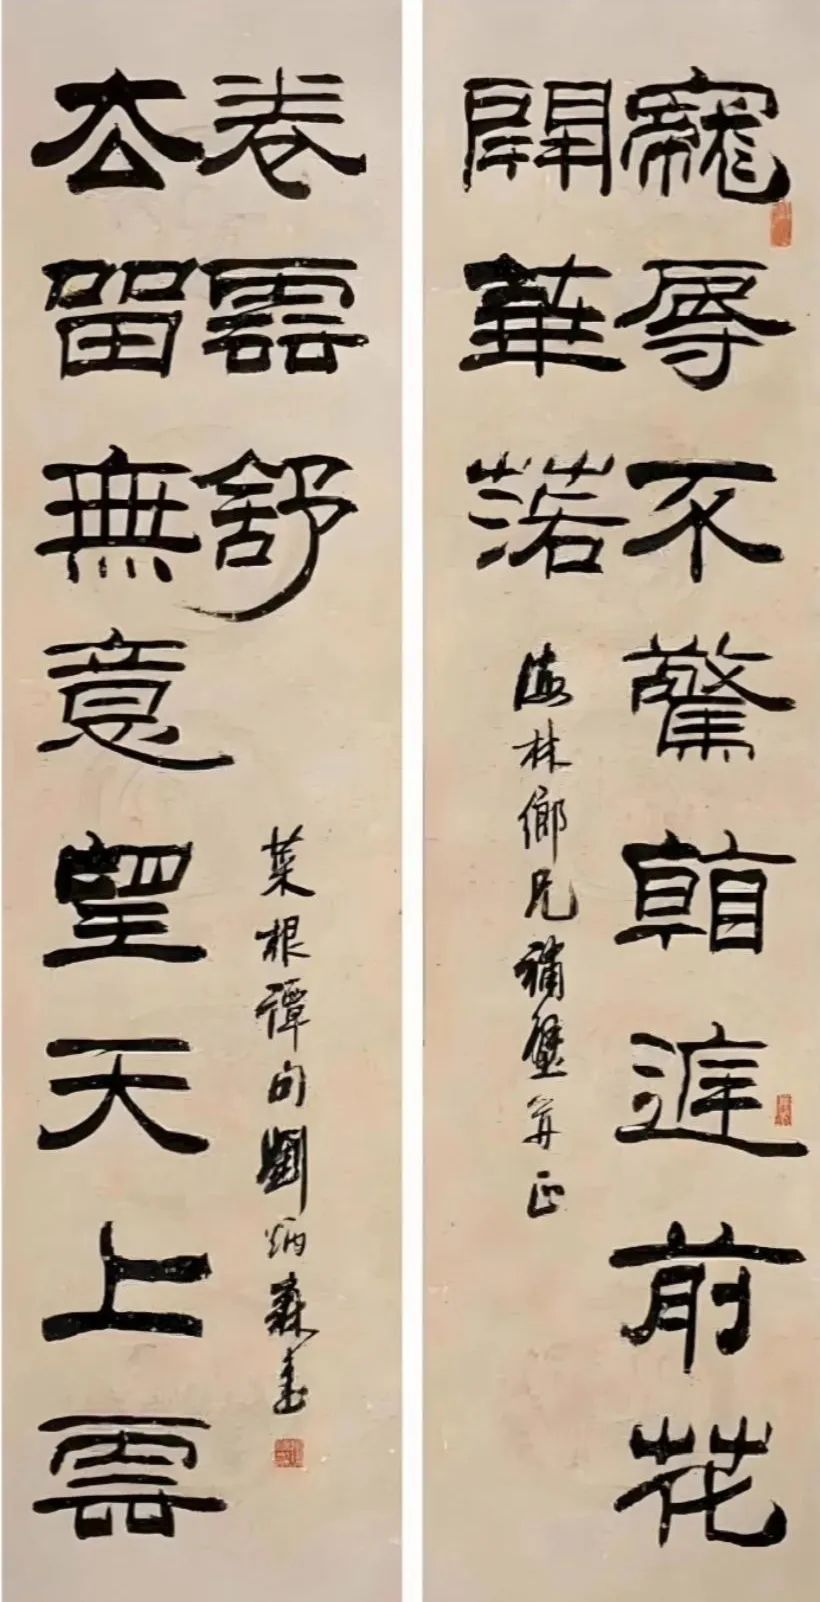 寵辱不驚看庭前花
開華落
海林鄉兄補壁並正
去留無意望天上雲
卷雲舒
菜根譚句劉炳森書